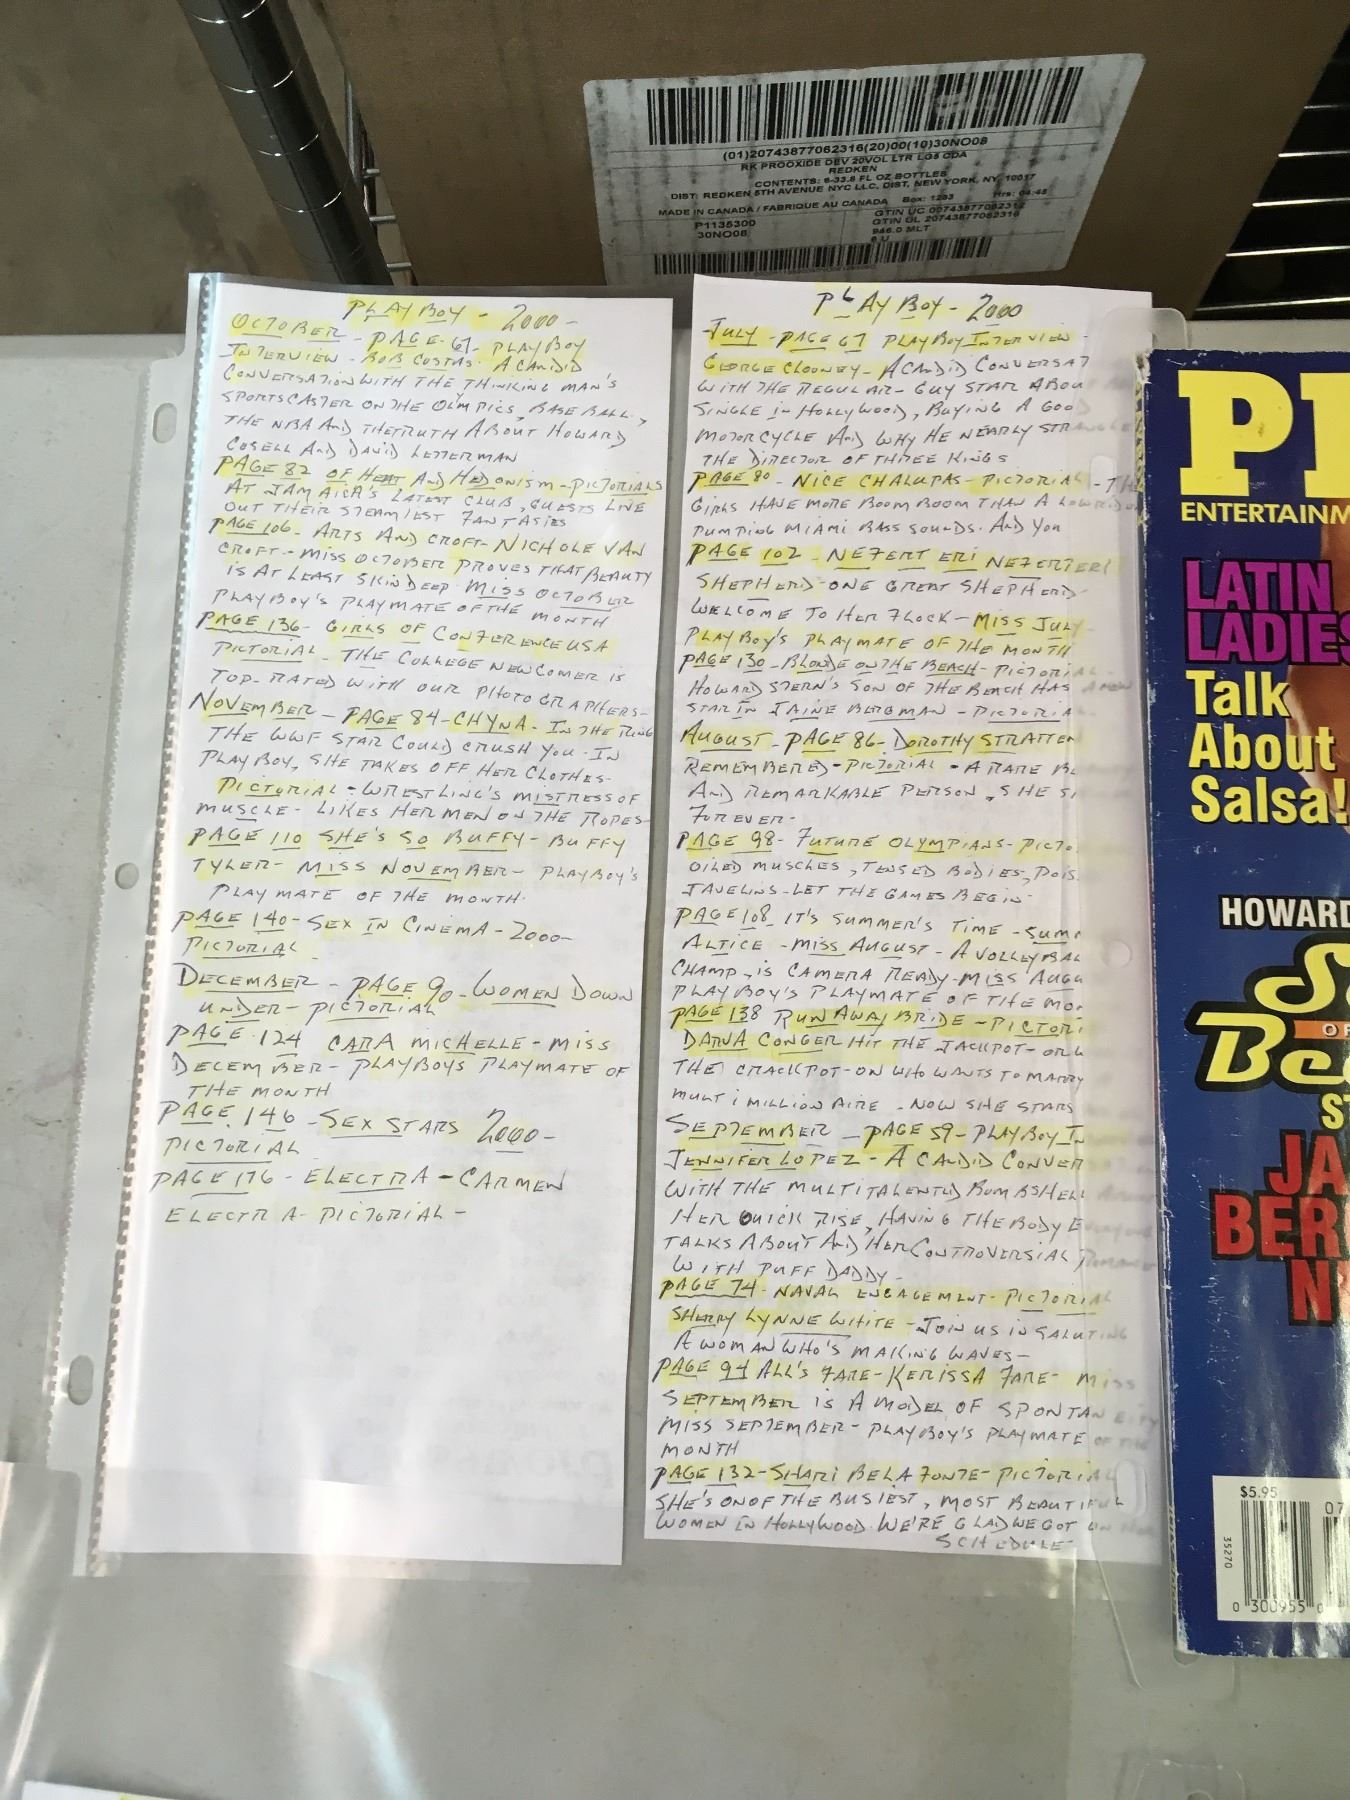 (01)20743877062316(20)00(10)30NO08
RK PROOXIDE DEV 20VOL LTR LG5 CDA
REDKEN
CONTENTS: 6-33.8 FL OZ BOTTLES
DIST: REDKEN 5TH AVENUE NYC LLC, DIST, NEW YORK, NY, 10017
MADE IN CANADA / FABRIQUE AU CANADA Box: 1283 Hrs: 04:48
P1135300
30NO08
GTIN UC 00743877062312
GTIN UL 20743877062316
946.0 MLT
6 U
PLAYBOY - 2000 -
OCTOBER - PAGE 67 - PLAYBOY
INTERVIEW - BOB COSTAS - A CANDID
CONVERSATION WITH THE THINKING MAN'S
SPORTSCASTER ON THE OLYMPICS, BASEBALL,
THE NBA AND THE TRUTH ABOUT HOWARD
COSELL AND DAVID LETTERMAN
PAGE 82 OF HEAT AND HEDONISM - PICTORIALS
AT JAMAICA'S LATEST CLUB, GUESTS LIVE
OUT THEIR STEAMIEST FANTASIES
PAGE 106 - ARTS AND CROFT - NICHOLE VAN
CROFT - MISS OCTOBER PROVES THAT BEAUTY
IS AT LEAST SKIN DEEP - MISS OCTOBER
PLAYBOY'S PLAYMATE OF THE MONTH
PAGE 136 - GIRLS OF CONFERENCE USA
PICTORIAL - THE COLLEGE NEWCOMER IS
TOP-RATED WITH OUR PHOTOGRAPHERS -
NOVEMBER - PAGE 84 - CHYNA - IN THE RING
THE WWF STAR COULD CRUSH YOU - IN
PLAYBOY, SHE TAKES OFF HER CLOTHES -
PICTORIAL - WRESTLING'S MISTRESS OF
MUSCLE - LIKES HER MEN ON THE ROPES -
PAGE 110 SHE'S SO BUFFY - BUFFY
TYLER - MISS NOVEMBER - PLAYBOY'S
PLAYMATE OF THE MONTH -
PAGE 140 - SEX IN CINEMA - 2000 -
PICTORIAL
DECEMBER - PAGE 90 - WOMEN DOWN
UNDER - PICTORIAL
PAGE 124 CARA MICHELLE - MISS
DECEMBER - PLAYBOYS PLAYMATE OF
THE MONTH
PAGE 146 - SEX STARS 2000 -
PICTORIAL
PAGE 176 - ELECTRA - CARMEN
ELECTRA - PICTORIAL -
PLAYBOY - 2000
JULY - PAGE 67 PLAYBOY INTERVIEW -
GEORGE CLOONEY - A CANDID CONVERSAT
WITH THE REGULAR - GUY STAR ABOU
SINGLE IN HOLLYWOOD, BUYING A GOOD
MOTORCYCLE AND WHY HE NEARLY STRANGLE
THE DIRECTOR OF THREE KINGS
PAGE 80 - NICE CHALUPAS - PICTORIAL - THE
GIRLS HAVE MORE BOOM BOOM THAN A LOWRIDER
PUMPING MIAMI BASS SOUNDS. AND YOU
PAGE 102 - NEFERTERI NEFERTERI
SHEPHERD - ONE GREAT SHEPHERD -
WELCOME TO HER FLOCK - MISS JULY -
PLAYBOY'S PLAYMATE OF THE MONTH
PAGE 130 - BLONDE ON THE BEACH - PICTORIAL -
HOWARD STERN'S SON OF THE BEACH HAS A NEW
STAR IN JAIME BERGMAN - PICTORIA
AUGUST - PAGE 86 - DOROTHY STRATTEN
REMEMBERED - PICTORIAL - A RARE BE
AND REMARKABLE PERSON, SHE SI
FOREVER -
PAGE 98 - FUTURE OLYMPIANS - PICTO
OILED MUSCLES, TENSED BODIES, POIS
JAVELINS - LET THE GAMES BEGIN -
PAGE 108 - IT'S SUMMER'S TIME - SUMM
ALTICE - MISS AUGUST - A VOLLEYBAL
CHAMP, IS CAMERA READY - MISS AUGU
PLAYBOY'S PLAYMATE OF THE MON
PAGE 138 RUNAWAY BRIDE - PICTORI
DARVA CONGER HIT THE JACKPOT - OR W
THE CRACKPOT - ON WHO WANTS TO MARRY
MULTIMILLIONAIRE - NOW SHE STARS
SEPTEMBER - PAGE 59 - PLAYBOY IN
JENNIFER LOPEZ - A CANDID CONVER
WITH THE MULTITALENTED BOMBSHELL ABOUT
HER QUICK RISE, HAVING THE BODY EVERYONE
TALKS ABOUT AND HER CONTROVERSIAL ROMANCE
WITH PUFF DADDY -
PAGE 74 - NAVAL ENGAGEMENT - PICTORIAL
SHERRY LYNNE WHITE - JOIN US IN SALUTING
A WOMAN WHO'S MAKING WAVES -
PAGE 94 ALL'S FARE - KERISSA FARE - MISS
SEPTEMBER IS A MODEL OF SPONTANEITY
MISS SEPTEMBER - PLAYBOY'S PLAYMATE OF THE
MONTH
PAGE 132 - SHARI BELAFONTE - PICTORIAL
SHE'S ON OF THE BUSIEST, MOST BEAUTIFUL
WOMEN IN HOLLYWOOD. WE'RE GLAD WE GOT ON HER
SCHEDULE -
PL
ENTERTAINM
LATIN
LADIES
Talk
About
Salsa!
HOWARD
OF
ST
JA
BER
N
$5.95
07
35270
0 300955 0